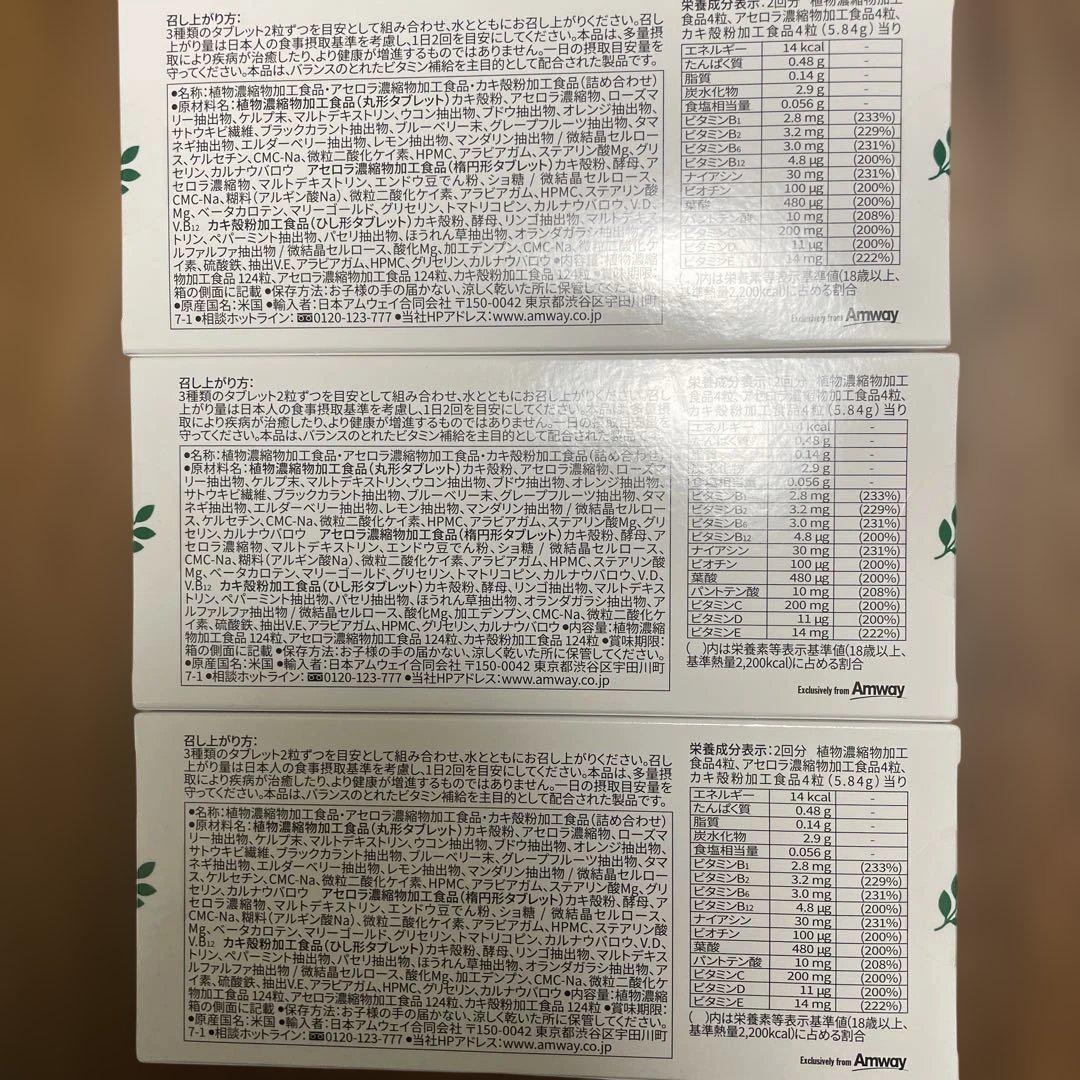 召し上がり方：
3種類のタブレット2粒ずつを目安として組み合わせ、水とともにお召し上がりください。召し
上がり量は日本人の食事摂取基準を考慮し、1日2回を目安にしてください。本品は、多量摂
取により疾病が治癒したり、より健康が増進するものではありません。一日の摂取目安量を
守ってください。本品は、バランスのとれたビタミン補給を主目的として配合された製品です。
●名称：植物濃縮物加工食品・アセロラ濃縮物加工食品・カキ殻粉加工食品（詰め合わせ）
●原材料名：植物濃縮物加工食品（丸形タブレット）カキ殻粉、アセロラ濃縮物、ローズマ
リー抽出物、ケルプ末、マルトデキストリン、ウコン抽出物、ブドウ抽出物、オレンジ抽出物、
サトウキビ繊維、ブラックカラント抽出物、ブルーベリー末、グレープフルーツ抽出物、タマ
ネギ抽出物、エルダーベリー抽出物、レモン抽出物、マンダリン抽出物 / 微結晶セルロー
ス、ケルセチン、CMC-Na、微粒二酸化ケイ素、HPMC、アラビアガム、ステアリン酸Mg、グリ
セリン、カルナウバロウ　アセロラ濃縮物加工食品（楕円形タブレット）カキ殻粉、酵母、ア
セロラ濃縮物、マルトデキストリン、エンドウ豆でん粉、ショ糖 / 微結晶セルロース、
CMC-Na、糊料（アルギン酸Na）、微粒二酸化ケイ素、アラビアガム、HPMC、ステアリン酸
Mg、ベータカロテン、マリーゴールド、グリセリン、トマトリコピン、カルナウバロウ、V.D、
V.B12 カキ殻粉加工食品（ひし形タブレット）カキ殻粉、酵母、リンゴ抽出物、マルトデキス
トリン、ペパーミント抽出物、パセリ抽出物、ほうれん草抽出物、オランダガラシ抽出物、ア
ルファルファ抽出物 / 微結晶セルロース、酸化Mg、加工デンプン、CMC-Na、微粒二酸化ケ
イ素、硫酸鉄、抽出V.E、アラビアガム、HPMC、グリセリン、カルナウバロウ ●内容量：植物濃縮
物加工食品 124粒、アセロラ濃縮物加工食品 124粒、カキ殻粉加工食品 124粒 ●賞味期限：
箱の側面に記載 ●保存方法：お子様の手の届かない、涼しく乾いた所に保管してください。
●原産国名：米国 ●輸入者：日本アムウェイ合同会社 〒150-0042 東京都渋谷区宇田川町
7-1 ●相談ホットライン：0120-123-777 ●当社HPアドレス：www.amway.co.jp
栄養成分表示：2回分　植物濃縮物加工
食品4粒、アセロラ濃縮物加工食品4粒、
カキ殻粉加工食品4粒（5.84g）当り
エネルギー 14 kcal -
たんぱく質 0.48 g -
脂質 0.14 g -
炭水化物 2.9 g -
食塩相当量 0.056 g -
ビタミンB1 2.8 mg (233%)
ビタミンB2 3.2 mg (229%)
ビタミンB6 3.0 mg (231%)
ビタミンB12 4.8 μg (200%)
ナイアシン 30 mg (231%)
ビオチン 100 μg (200%)
葉酸 480 μg (200%)
パントテン酸 10 mg (208%)
ビタミン 200 mg (200%)
ビタミンD 11 μg (200%)
ビタミンE 14 mg (222%)
（　）内は栄養素等表示基準値(18歳以上、
基準熱量2,200kcal)に占める割合
Exclusively from Amway
召し上がり方：
3種類のタブレット2粒ずつを目安として組み合わせ、水とともにお召し上がりください。召し
上がり量は日本人の食事摂取基準を考慮し、1日2回を目安にしてください。本品は、多量摂
取により疾病が治癒したり、より健康が増進するものではありません。一日の摂取目安量を
守ってください。本品は、バランスのとれたビタミン補給を主目的として配合された製品です。
●名称：植物濃縮物加工食品・アセロラ濃縮物加工食品・カキ殻粉加工食品（詰め合わせ）
●原材料名：植物濃縮物加工食品（丸形タブレット）カキ殻粉、アセロラ濃縮物、ローズマ
リー抽出物、ケルプ末、マルトデキストリン、ウコン抽出物、ブドウ抽出物、オレンジ抽出物、
サトウキビ繊維、ブラックカラント抽出物、ブルーベリー末、グレープフルーツ抽出物、タマ
ネギ抽出物、エルダーベリー抽出物、レモン抽出物、マンダリン抽出物 / 微結晶セルロー
ス、ケルセチン、CMC-Na、微粒二酸化ケイ素、HPMC、アラビアガム、ステアリン酸Mg、グリ
セリン、カルナウバロウ　アセロラ濃縮物加工食品（楕円形タブレット）カキ殻粉、酵母、ア
セロラ濃縮物、マルトデキストリン、エンドウ豆でん粉、ショ糖 / 微結晶セルロース、
CMC-Na、糊料（アルギン酸Na）、微粒二酸化ケイ素、アラビアガム、HPMC、ステアリン酸
Mg、ベータカロテン、マリーゴールド、グリセリン、トマトリコピン、カルナウバロウ、V.D、
V.B12 カキ殻粉加工食品（ひし形タブレット）カキ殻粉、酵母、リンゴ抽出物、マルトデキス
トリン、ペパーミント抽出物、パセリ抽出物、ほうれん草抽出物、オランダガラシ抽出物、ア
ルファルファ抽出物 / 微結晶セルロース、酸化Mg、加工デンプン、CMC-Na、微粒二酸化ケ
イ素、硫酸鉄、抽出V.E、アラビアガム、HPMC、グリセリン、カルナウバロウ ●内容量：植物濃縮
物加工食品 124粒、アセロラ濃縮物加工食品 124粒、カキ殻粉加工食品 124粒 ●賞味期限：
箱の側面に記載 ●保存方法：お子様の手の届かない、涼しく乾いた所に保管してください。
●原産国名：米国 ●輸入者：日本アムウェイ合同会社 〒150-0042 東京都渋谷区宇田川町
7-1 ●相談ホットライン：0120-123-777 ●当社HPアドレス：www.amway.co.jp
栄養成分表示：2回分　植物濃縮物加工
食品4粒、アセロラ濃縮物加工食品4粒、
カキ殻粉加工食品4粒（5.84g）当り
エネルギー 14 kcal -
たんぱく質 0.48 g -
0.14 g -
2.9 g -
食塩相当量 0.056 g -
ビタミンB1 2.8 mg (233%)
ビタミンB2 3.2 mg (229%)
ビタミンB6 3.0 mg (231%)
ビタミンB12 4.8 μg (200%)
ナイアシン 30 mg (231%)
ビオチン 100 μg (200%)
葉酸 480 μg (200%)
パントテン酸 10 mg (208%)
ビタミンC 200 mg (200%)
ビタミンD 11 μg (200%)
ビタミンE 14 mg (222%)
（　）内は栄養素等表示基準値(18歳以上、
基準熱量2,200kcal)に占める割合
Exclusively from Amway
召し上がり方：
3種類のタブレット2粒ずつを目安として組み合わせ、水とともにお召し上がりください。召し
上がり量は日本人の食事摂取基準を考慮し、1日2回を目安にしてください。本品は、多量摂
取により疾病が治癒したり、より健康が増進するものではありません。一日の摂取目安量を
守ってください。本品は、バランスのとれたビタミン補給を主目的として配合された製品です。
●名称：植物濃縮物加工食品・アセロラ濃縮物加工食品・カキ殻粉加工食品（詰め合わせ）
●原材料名：植物濃縮物加工食品（丸形タブレット）カキ殻粉、アセロラ濃縮物、ローズマ
リー抽出物、ケルプ末、マルトデキストリン、ウコン抽出物、ブドウ抽出物、オレンジ抽出物、
サトウキビ繊維、ブラックカラント抽出物、ブルーベリー末、グレープフルーツ抽出物、タマ
ネギ抽出物、エルダーベリー抽出物、レモン抽出物、マンダリン抽出物 / 微結晶セルロー
ス、ケルセチン、CMC-Na、微粒二酸化ケイ素、HPMC、アラビアガム、ステアリン酸Mg、グリ
セリン、カルナウバロウ　アセロラ濃縮物加工食品（楕円形タブレット）カキ殻粉、酵母、ア
セロラ濃縮物、マルトデキストリン、エンドウ豆でん粉、ショ糖 / 微結晶セルロース、
CMC-Na、糊料（アルギン酸Na）、微粒二酸化ケイ素、アラビアガム、HPMC、ステアリン酸
Mg、ベータカロテン、マリーゴールド、グリセリン、トマトリコピン、カルナウバロウ、V.D、
V.B12 カキ殻粉加工食品（ひし形タブレット）カキ殻粉、酵母、リンゴ抽出物、マルトデキス
トリン、ペパーミント抽出物、パセリ抽出物、ほうれん草抽出物、オランダガラシ抽出物、ア
ルファルファ抽出物 / 微結晶セルロース、酸化Mg、加工デンプン、CMC-Na、微粒二酸化ケ
イ素、硫酸鉄、抽出V.E、アラビアガム、HPMC、グリセリン、カルナウバロウ ●内容量：植物濃縮
物加工食品 124粒、アセロラ濃縮物加工食品 124粒、カキ殻粉加工食品 124粒 ●賞味期限：
箱の側面に記載 ●保存方法：お子様の手の届かない、涼しく乾いた所に保管してください。
●原産国名：米国 ●輸入者：日本アムウェイ合同会社 〒150-0042 東京都渋谷区宇田川町
7-1 ●相談ホットライン：0120-123-777 ●当社HPアドレス：www.amway.co.jp
栄養成分表示：2回分　植物濃縮物加工
食品4粒、アセロラ濃縮物加工食品4粒、
カキ殻粉加工食品4粒（5.84g）当り
エネルギー 14 kcal -
たんぱく質 0.48 g -
脂質 0.14 g -
炭水化物 2.9 g -
食塩相当量 0.056 g -
ビタミンB1 2.8 mg (233%)
ビタミンB2 3.2 mg (229%)
ビタミンB6 3.0 mg (231%)
ビタミンB12 4.8 μg (200%)
ナイアシン 30 mg (231%)
ビオチン 100 μg (200%)
葉酸 480 μg (200%)
パントテン酸 10 mg (208%)
ビタミンC 200 mg (200%)
ビタミンD 11 μg (200%)
ビタミンE 14 mg (222%)
（　）内は栄養素等表示基準値(18歳以上、
基準熱量2,200kcal)に占める割合
Exclusively from Amway